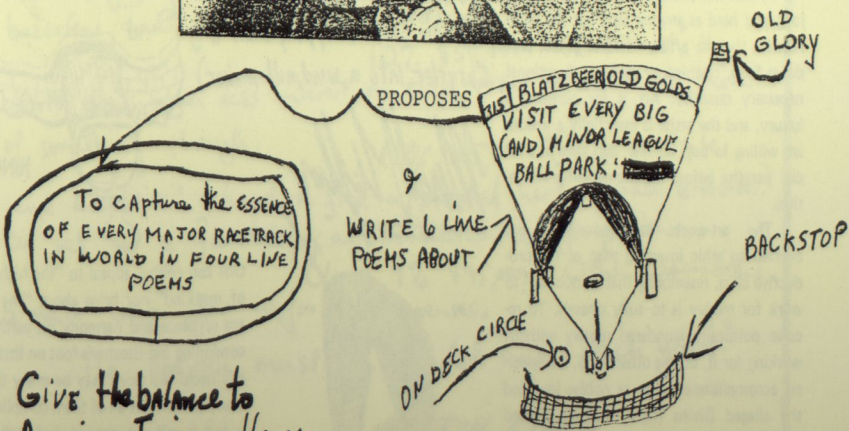 OLD
GLORY
PROPOSES
315 BLATZ BEER OLD GOLDS
VISIT EVERY BIG
(AND) MINOR LEAGUE
BALL PARK:
To CAPture the ESSENCE
OF EVERY MAJOR RACETRACK
IN WORLD IN FOUR LINE
POEMS
&
WRITE 6 LINE
POEMS ABOUT
BACKSTOP
ON DECK CIRCLE
Give the balance to